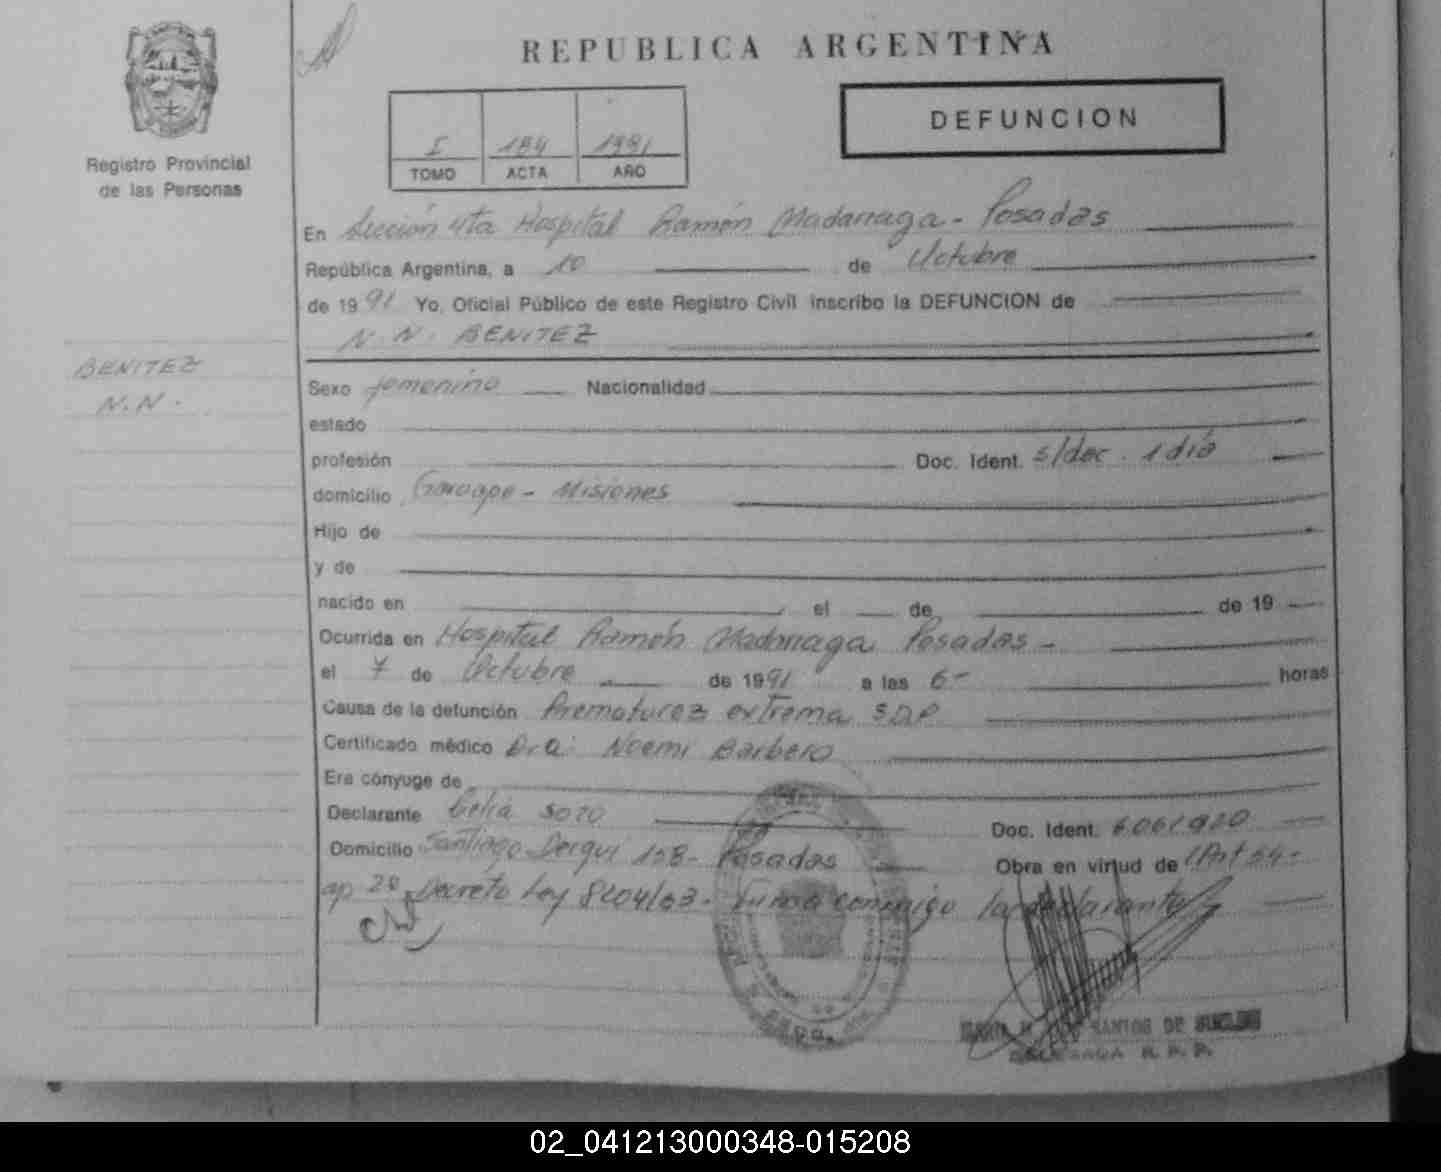 REPUBLICA ARGENTINA
DEFUNCION
I 184 1991
TOMO ACTA AÑO
Registro Provincial
de las Personas
En Sección 4ta Hospital Ramón Madariaga - Posadas
República Argentina, a 10 de Octubre
de 1991 Yo, Oficial Público de este Registro Civil inscribo la DEFUNCION de
N.N. BENITEZ
BENITEZ
N.N.
Sexo femenino Nacionalidad
estado
profesión Doc. Ident. s/doc. 1 día
domicilio Garuape - Misiones
Hijo de
y de
nacido en el de de 19
Ocurrida en Hospital Ramón Madariaga Posadas -
el 7 de Octubre de 1991 a las 6- horas
Causa de la defunción Prematurez extrema SDR
Certificado médico Dra: Noemi Barbero
Era cónyuge de
Declarante Celia Sozo Doc. Ident. 6061920
Domicilio Santiago Derqui 158 - Posadas Obra en virtud de Art 54-
ap 20 Decreto Ley 8204/63 - Firma conmigo la declarante
SANTOS DE
DELEGADA R. P. P.
02_041213000348-015208